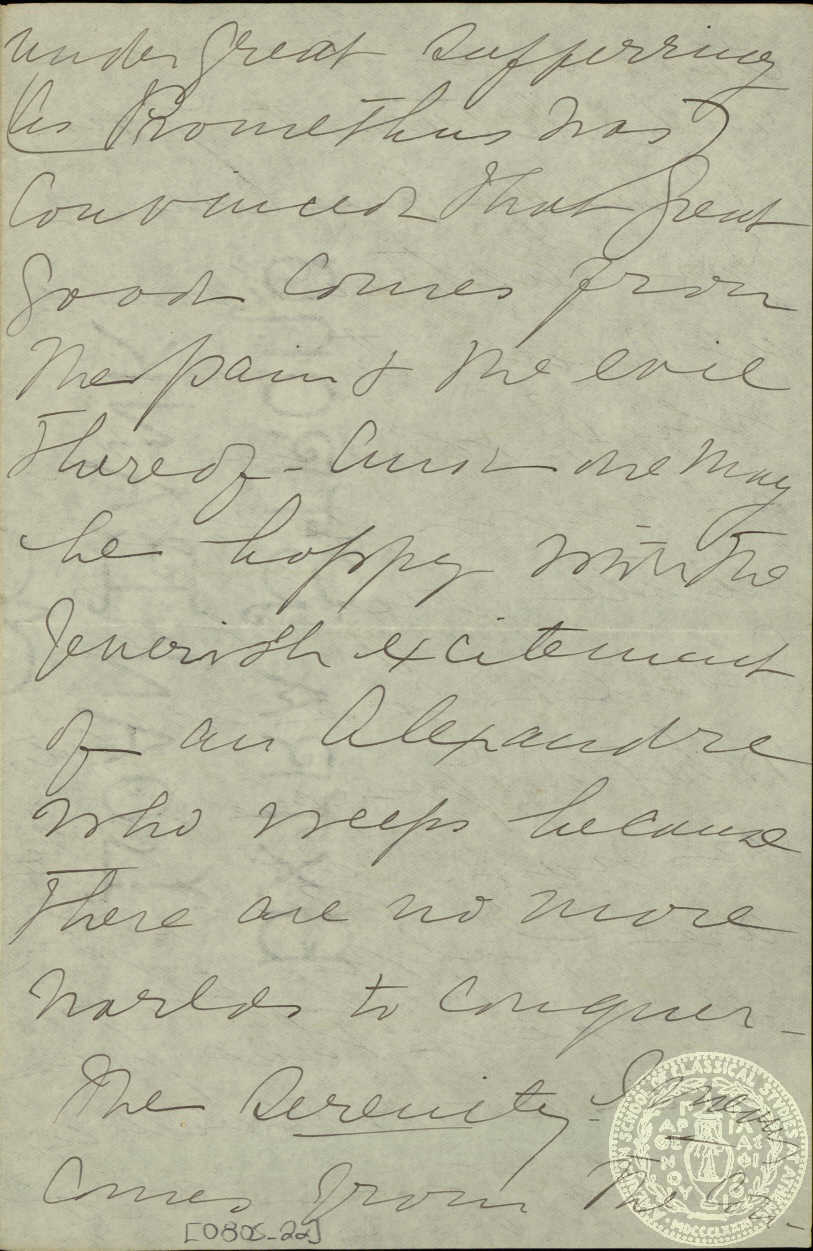 under great sufferring
(as Promethus was)
convinced that great
good comes from
the pain & the evil
thereof - And one may
be happy with the
feverish excitement
of an Alexandre
who weeps because
there are no more
worlds to conquer -
The Serenity I mean
comes from the
[0805-22]
SCHOOL OF CLASSICAL STUDIES AT ATHENS